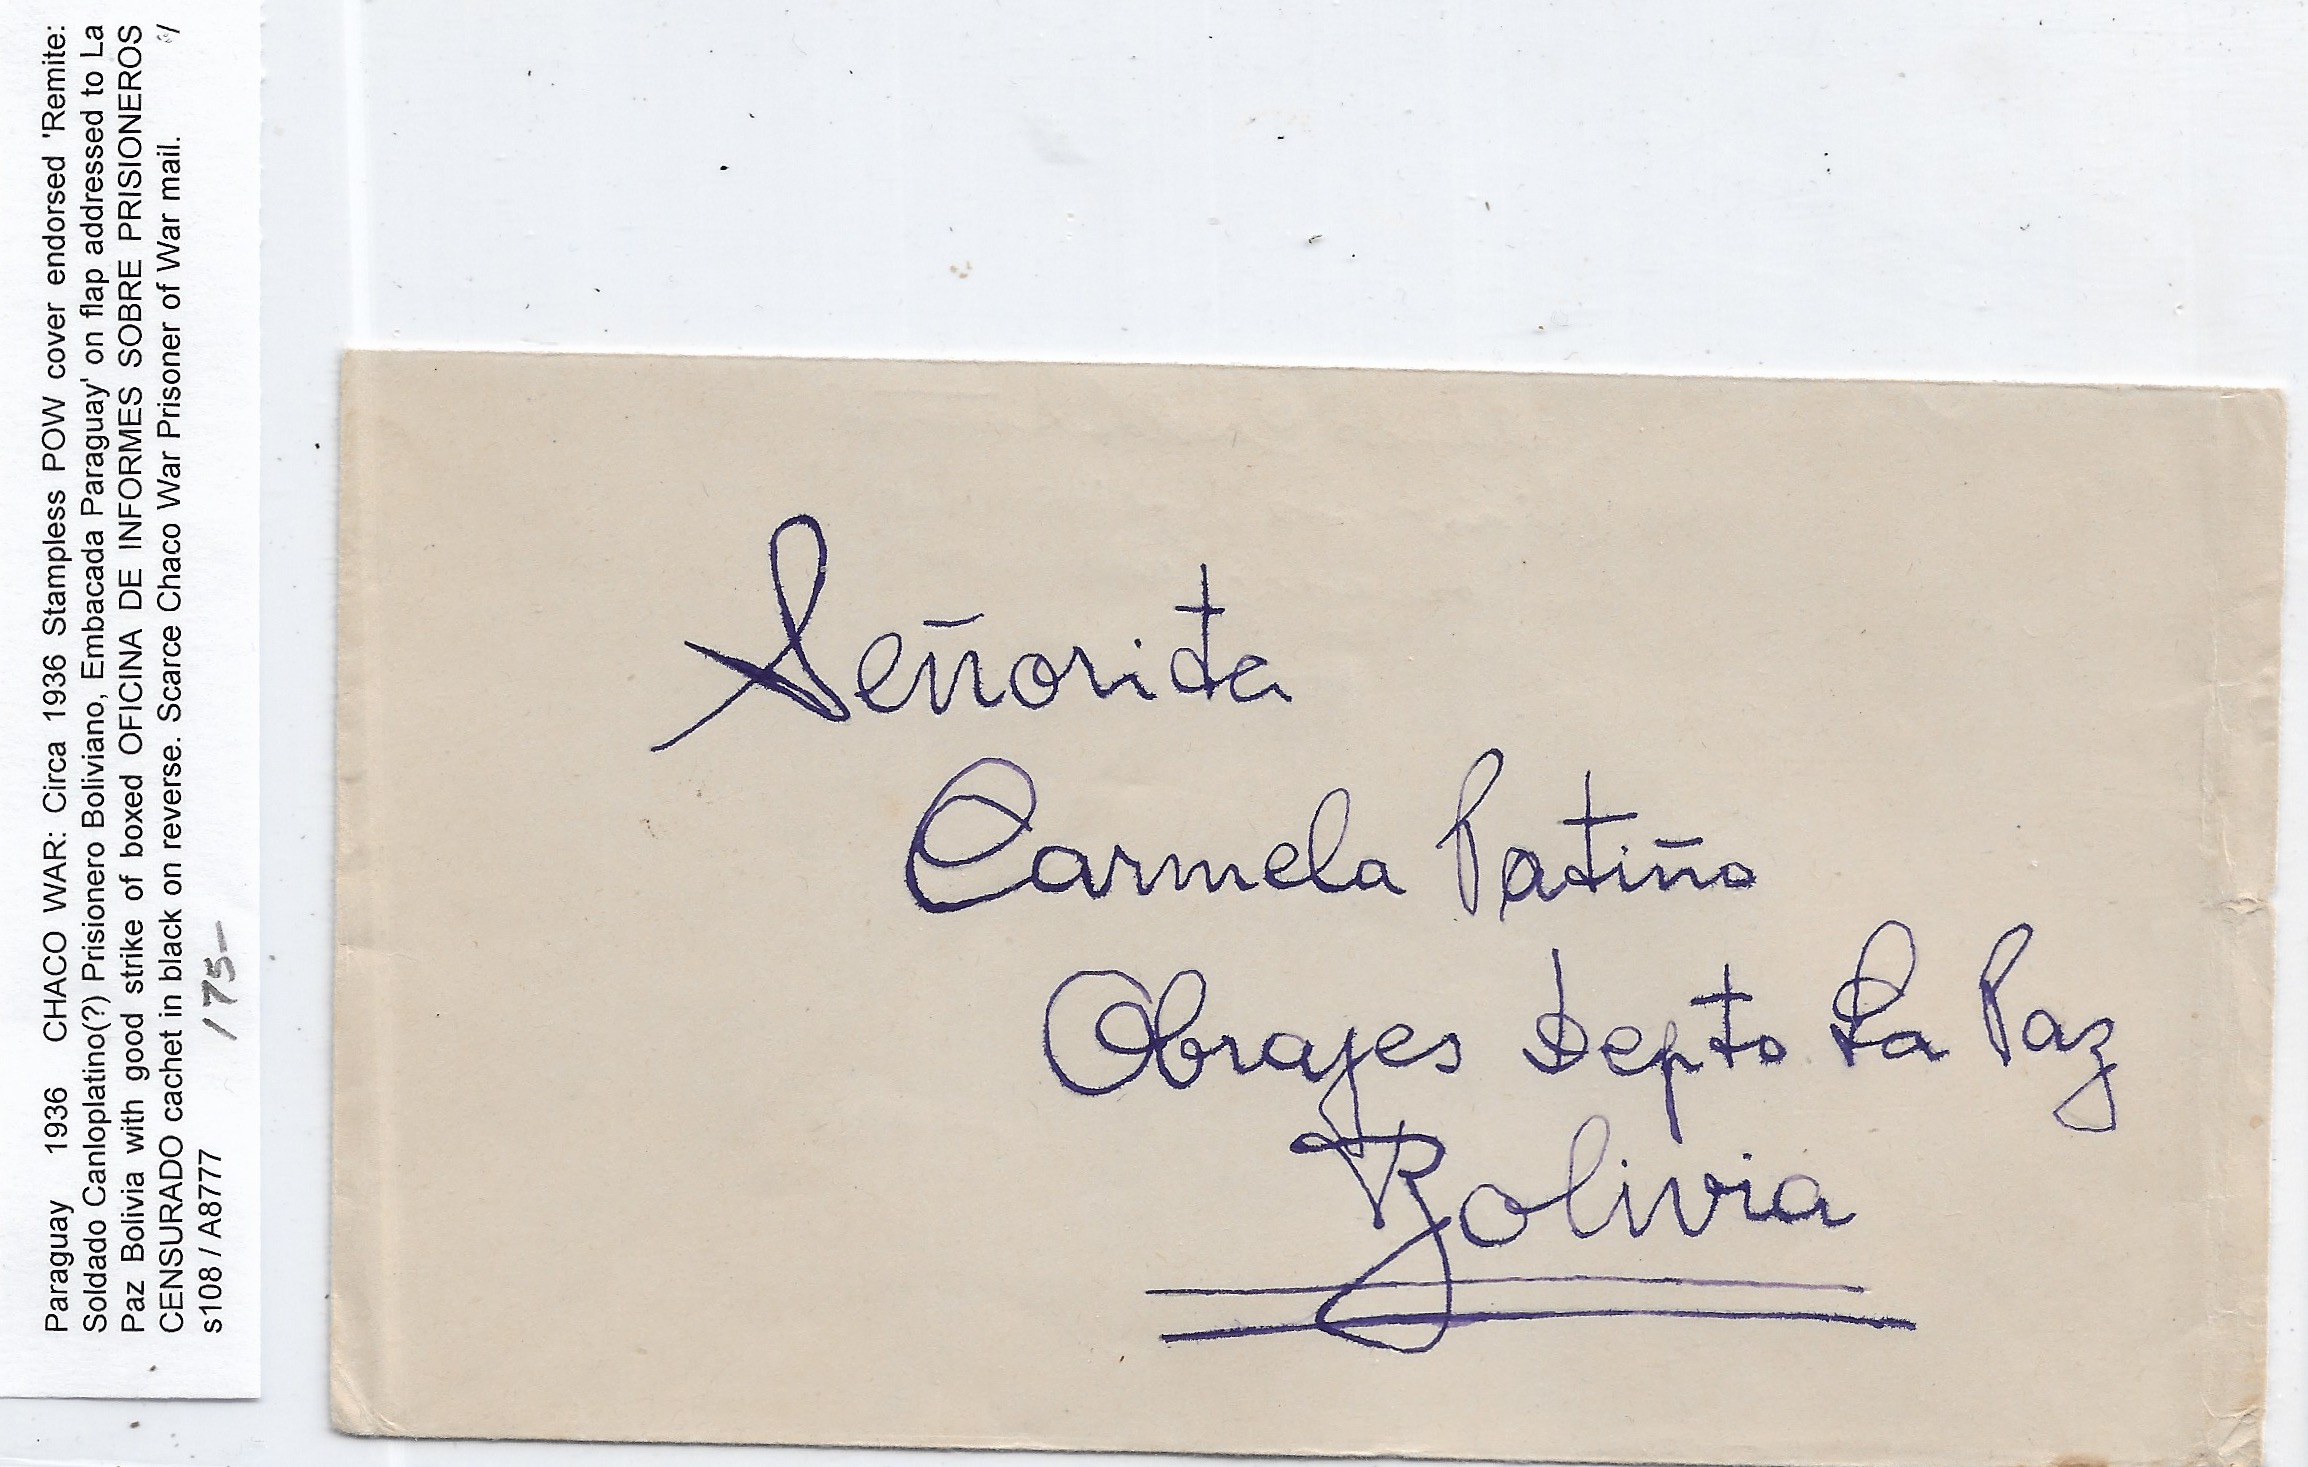 Paraguay 1936 CHACO WAR: Circa 1936 Stampless POW cover endorsed 'Remite:
Soldado Canloplatino(?) Prisionero Boliviano, Embacada Paraguay' on flap addressed to La
Paz Bolivia with good strike of boxed OFICINA DE INFORMES SOBRE PRISIONEROS
CENSURADO cachet in black on reverse. Scarce Chaco War Prisoner of War mail.
s108 / A8777 175-
Señorita
Carmela Patiño
Obrajes Depto La Paz
Bolivia